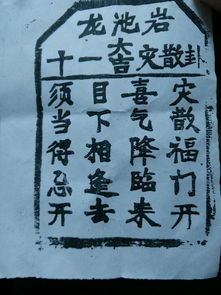 龙池岩
十一大吉灾散卦
灾散福门开
喜气降临来
目下相逢去
须当得忌开